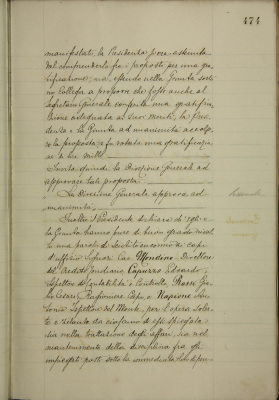 474
manifestati, la Presidenza s'era astenuta
dal comprenderlo fra i proposti per una gra-
tificazione; ma, essendo nella Giunta sorti
collega a proporre che fosse anche al
Segretario Generale conferita una gratifica-
zione adeguata ai suoi meriti, la Presi-
denza e la Giunta ad unanimità accolse-
ro la proposta e fu votata una gratificazio-
ne di lire mille.
Invita quindi la Direzione Generale ad
approvare tali proposte.
La Direzione Generale approva ad
unanimità.
Inoltre il Presidente dichiara che egli e
la Giunta hanno pure di buon grado rivol-
to una parola di encomio ai capi
d'ufficio signori Cav. Mondino, Direttore
del Credito fondiario, Capuzzo Edoardo,
Ispettore di Contabilità e Controllo,
Cesare, Ragioniere Capo, e Napione An-
tonio Ispettore del Monte, per l'opera soler-
te e zelante da ciascuno di essi spiegata
sia nella trattazione degli affari, sia nel
mantenimento della disciplina fra gli
impiegati posti sotto la immediata loro dipen-